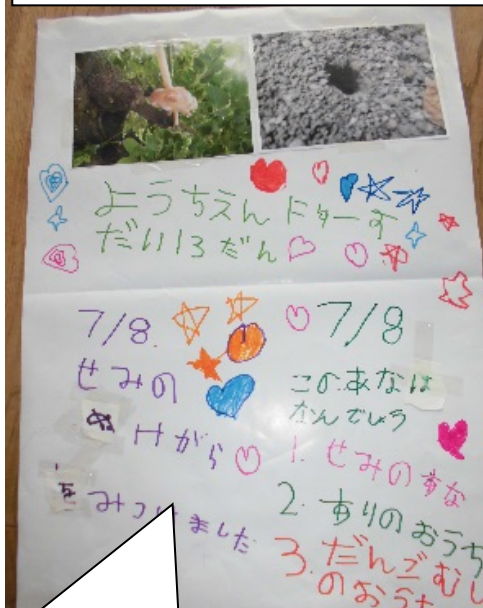 ようちえん にゅーす
だい13だん
7/8.
せみの
ぬけがら
をみつけました
7/8
このあなは
なんでしょう
1. せみのあな
2. ありのおうち
3. だんごむし
のおうち